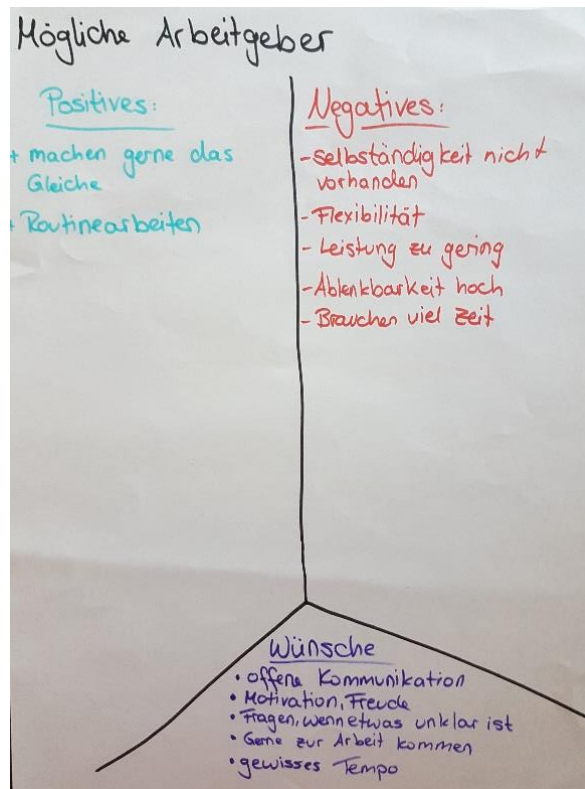 Mögliche Arbeitgeber
Positives:
+ machen gerne das
Gleiche
+ Routinearbeiten
Negatives:
- Selbständigkeit nicht
vorhanden
- Flexibilität
- Leistung zu gering
- Ablenkbarkeit hoch
- Brauchen viel Zeit
Wünsche
• offene Kommunikation
• Motivation, Freude
• Fragen, wenn etwas unklar ist
• Gerne zur Arbeit kommen
• gewisses Tempo